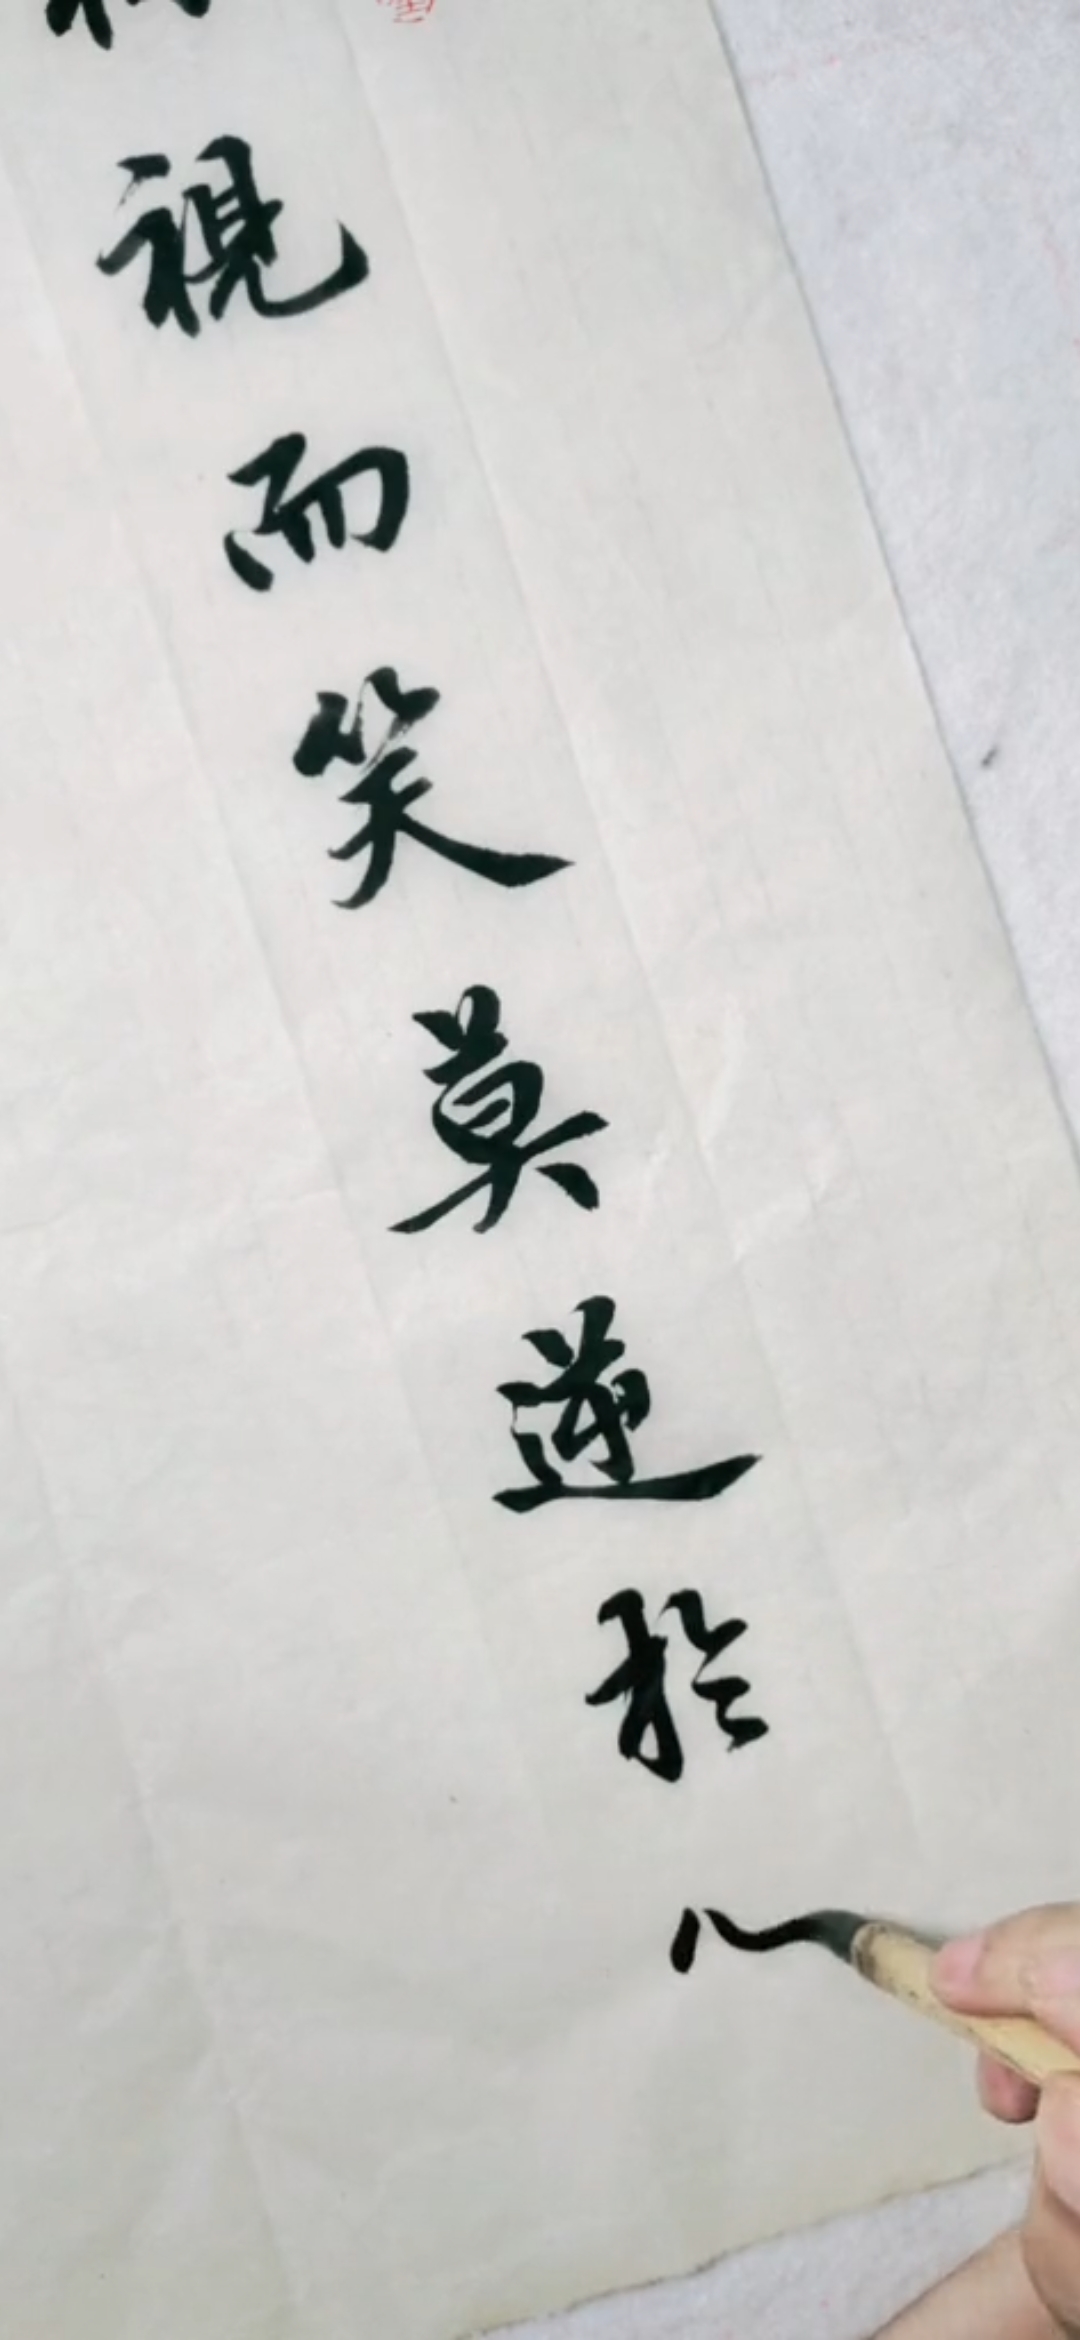 視而笑莫逆於心